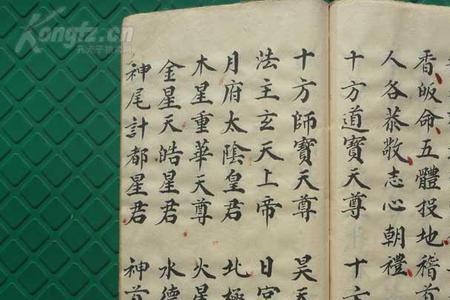 Kongfz.cn
孔夫子旧书网
香皈命五體投地稽首
人各恭敬志心朝禮
十方道寶天尊 十方
十方師寶天尊 昊天
法主玄天上帝 日宮
月府太陰皇君 北極
木星重華天尊 火星
金星天皓星君 水德
神尾計都星君 神首